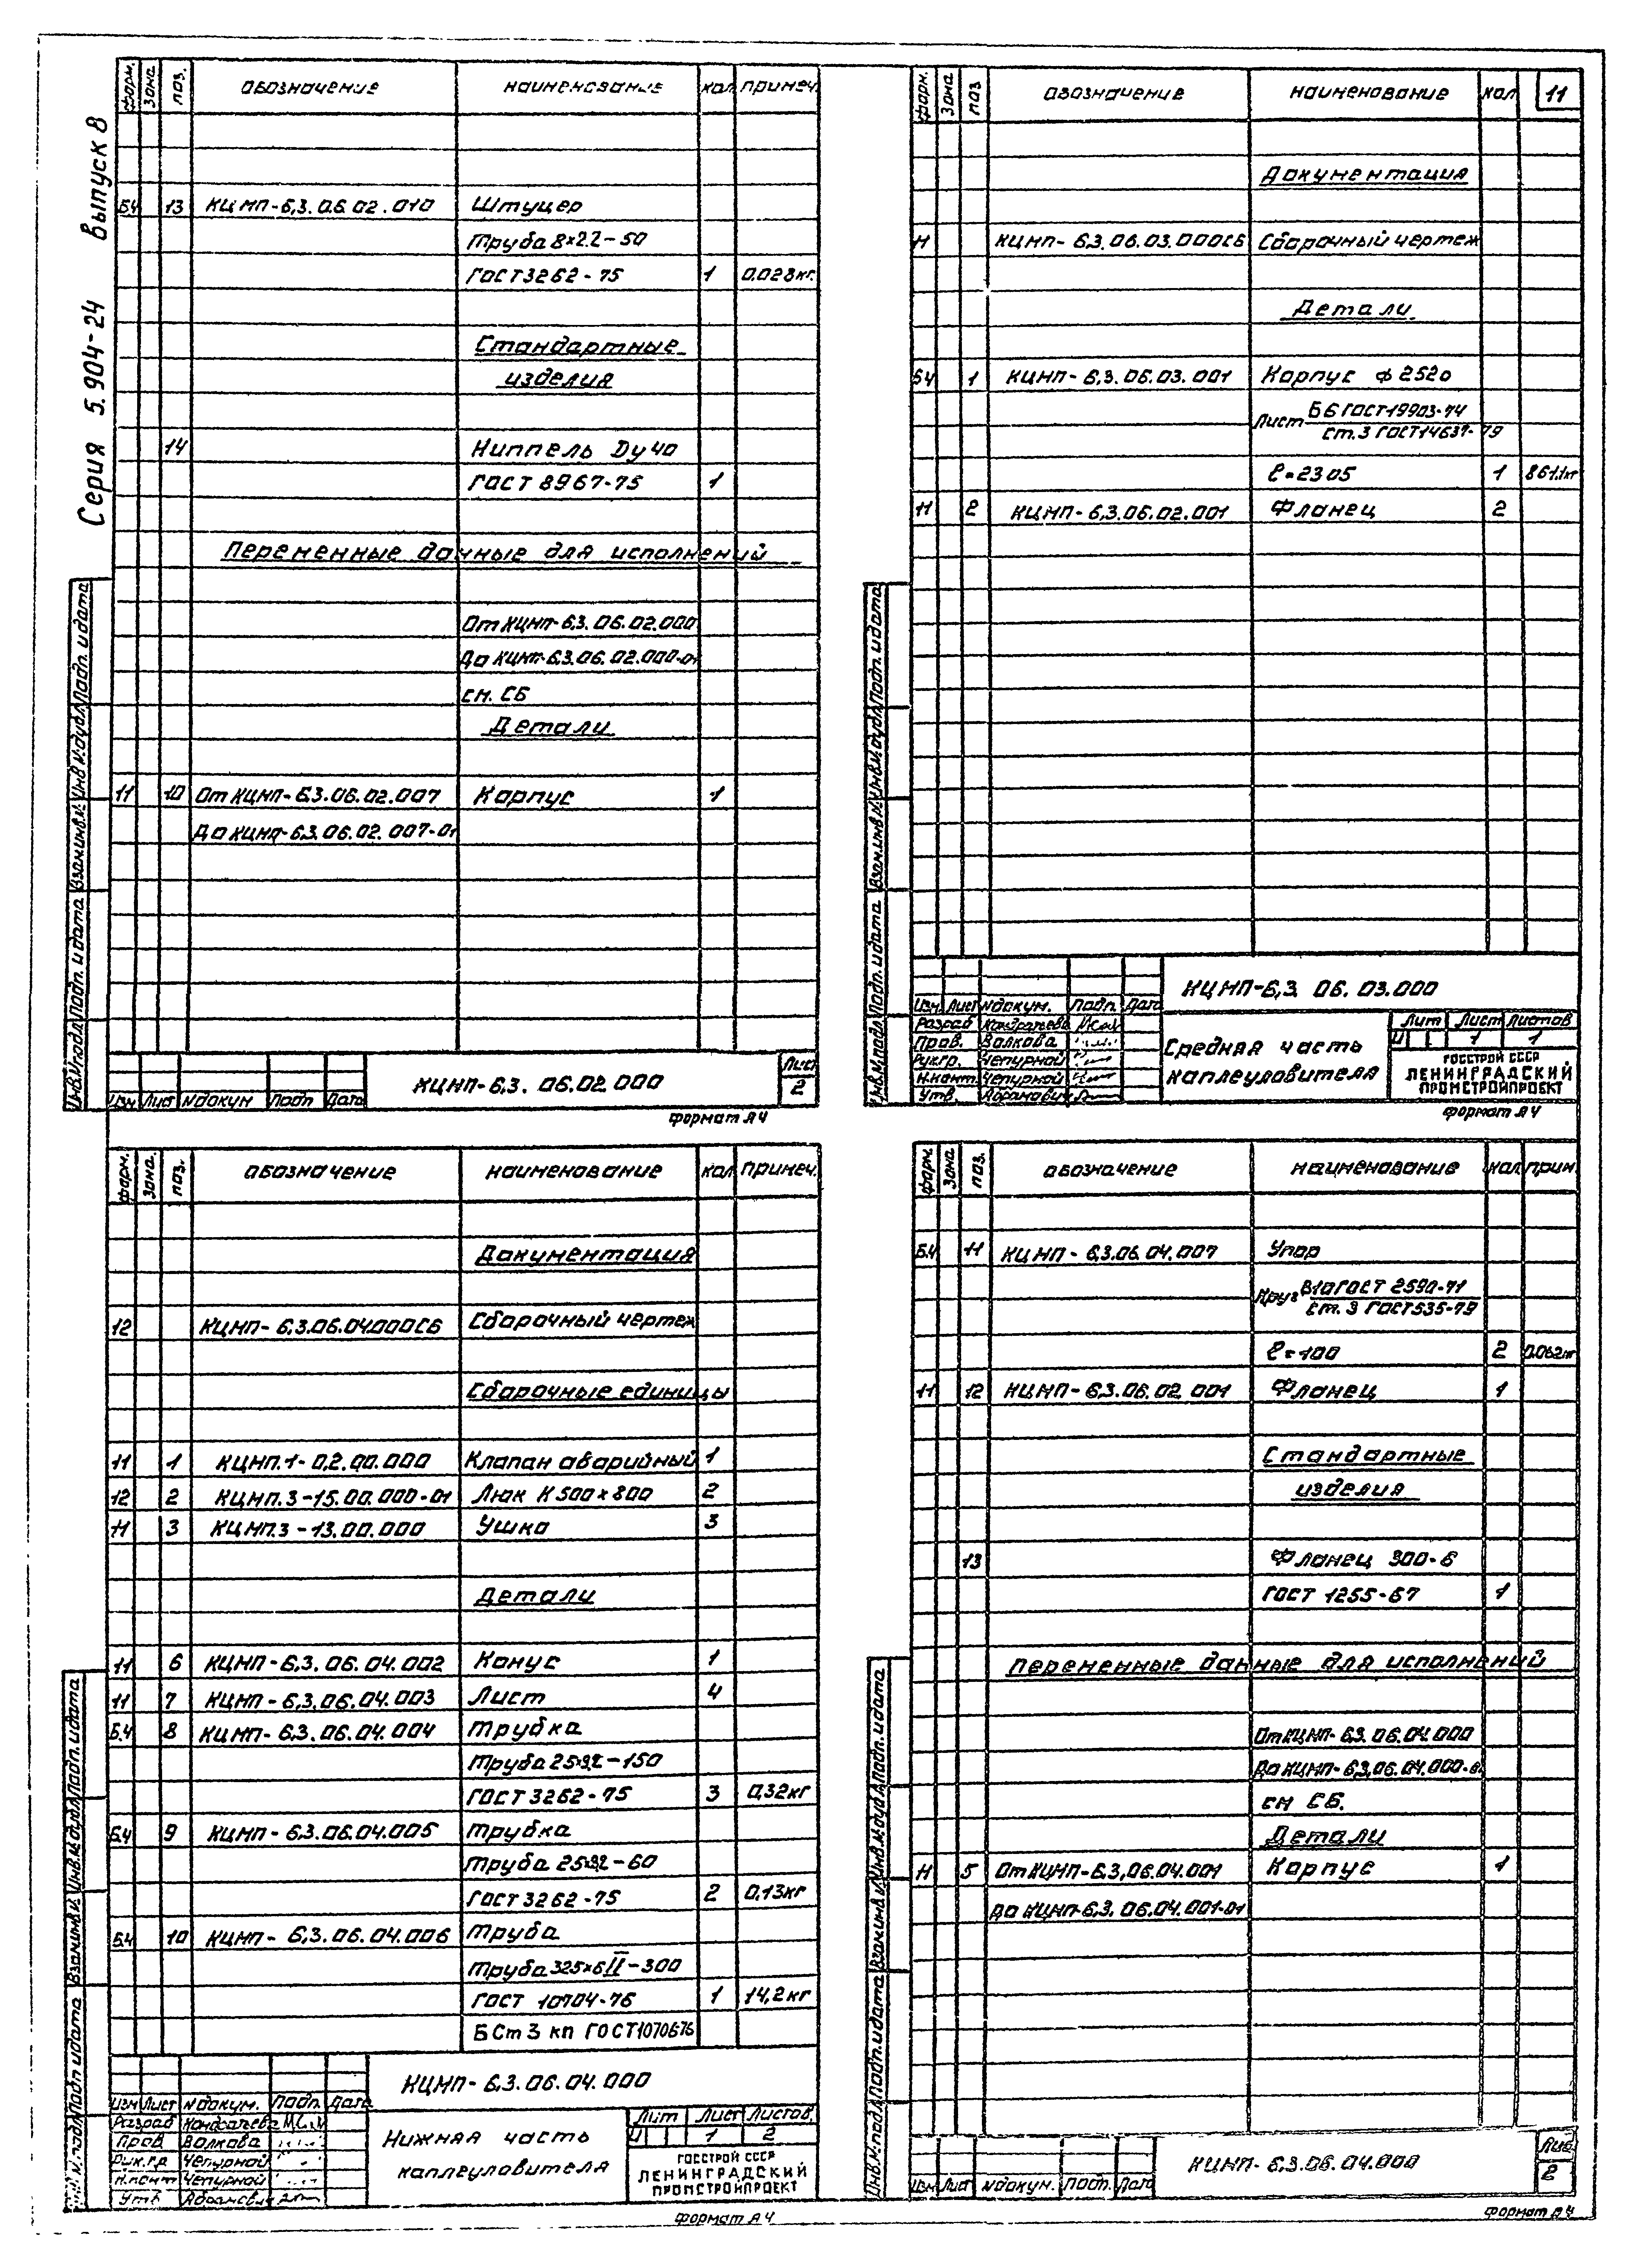 Серия 5.904-24 выпуск 8
форм. зона поз. обозначение наименование кол примеч.
Б4 13 КЦМП-6,3.06.02.010 Штуцер
Труба 8×2.2-50
ГОСТ 3262-75 1 0.028кг.
Стандартные
изделия
14 Ниппель Dу 40
ГОСТ 8967-75 1
Переменные данные для исполнений
От КЦМП-6,3.06.02.000
До КЦМП-6,3.06.02.000-01
см. СБ
Детали
11 10 От КЦМП-6,3.06.02.007 Корпус 1
До КЦМП-6,3.06.02.007-01
Инв.№подл Подп. и дата Взам.инв.№ Инв.№дубл Подп. и дата
Изм Лист №докум Подп Дата
КЦМП-6,3.06.02.000
Лист
2
Формат А4
форм. зона поз обозначение наименование кол 11
Документация
11 КЦМП-6,3.06.03.000СБ Сборочный чертеж
Детали
Б4 1 КЦМП-6,3.06.03.001 Корпус ф 2520
Лист Б6 ГОСТ19903-74
ст.3 ГОСТ14637-79
ℓ=2305 1 861,1кг
11 2 КЦМП-6,3.06.02.001 Фланец 2
Инв.№подл Подп. и дата Взам.инв.№ Инв.№дубл Подп. и дата
Изм Лист №докум. Подп. Дата
Разраб Кондратьева
Пров. Волкова
Рук.гр. Чепурной
Н.конт. Чепурной
Утв. Абрамович
КЦМП-6,3.06.03.000
Средняя часть
каплеуловителя
Лит Лист Листов
И 1 1
ГОССТРОЙ СССР
ЛЕНИНГРАДСКИЙ
ПРОМСТРОЙПРОЕКТ
Формат А4
форм. зона. поз. обозначение наименование кол примеч.
Документация
12 КЦМП-6,3.06.04.000СБ Сборочный чертеж
Сборочные единицы
11 1 КЦМП.1-0,2.00.000 Клапан аварийный 1
12 2 КЦМП.3-15.00.000-01 Люк К 500×800 2
11 3 КЦМП.3-13.00.000 Ушко 3
Детали
11 6 КЦМП-6,3.06.04.002 Конус 1
11 7 КЦМП-6,3.06.04.003 Лист 4
Б4 8 КЦМП-6,3.06.04.004 Трубка
Труба 25×3,2-150
ГОСТ 3262-75 3 0,32кг
Б4 9 КЦМП-6,3.06.04.005 Трубка
Труба 25×3,2-60
ГОСТ 3262-75 2 0,13кг
Б4 10 КЦМП-6,3.06.04.006 Труба
Труба 325×6 II-300
ГОСТ 10704-76 1 14,2кг
БСт 3 кп ГОСТ10706-76
Подп и дата Взам.инв.№ Инв.№дубл Подп. и дата
Изм Лист №докум. Подп. Дата
Разраб Кондратьева
Пров Волкова
Рук.гр Чепурной
Н.конт Чепурной
Утв Абрамович
КЦМП-6,3.06.04.000
Нижняя часть
каплеуловителя
Лит Лист Листов.
И 1 2
ГОССТРОЙ СССР
ЛЕНИНГРАДСКИЙ
ПРОМСТРОЙПРОЕКТ
Формат А4
форм. зона поз. обозначение наименование кол прим.
Б4 11 КЦМП-6,3.06.04.007 Упор
Круг В10 ГОСТ 2590-71
ст. 3 ГОСТ535-79
ℓ=100 2 0.062кг
11 12 КЦМП-6,3.06.02.001 Фланец 1
Стандартные
изделия
13 Фланец 300-6
ГОСТ 1255-67 1
Переменные данные для исполнений
От КЦМП-6,3.06.04.000
До КЦМП-6,3.06.04.000-01
см СБ.
Детали
11 5 От КЦМП-6,3.06.04.001 Корпус 1
до КЦМП-6,3.06.04.001-01
Инв.№подл Подп. и дата Взам.инв.№ Инв.№дубл Подп. и дата
Изм Лист №докум. Подп. Дата
КЦМП-6,3.06.04.000
Лис
2
Формат А4